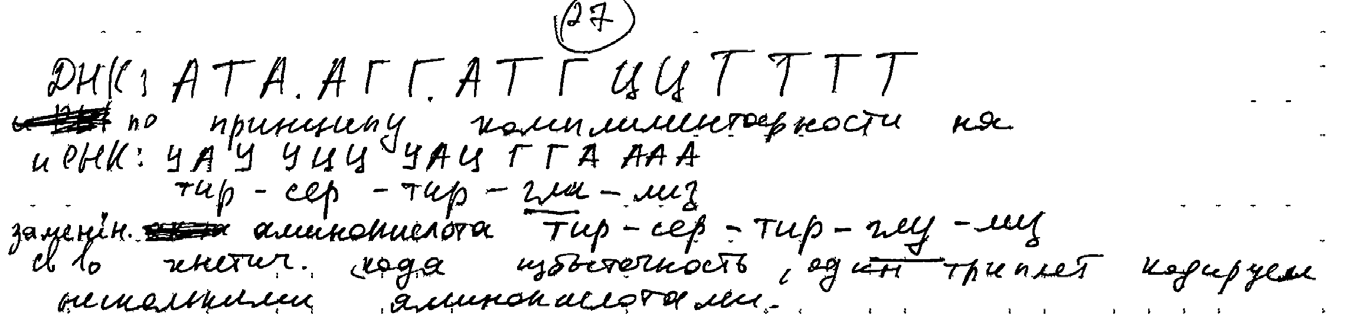 27
ДНК: АТА. АГГ. АТГ ЦЦТ ТТТ
по принципу комплиментарности на
и РНК: УАУ УЦЦ УАЦ ГГА ААА
тир - сер - тир - гли - лиз
заменён. аминокислота тир - сер - тир - глу - лиз
св во кнетич. кода избыточность, один триплет кодируем
несколькими аминокислотами.